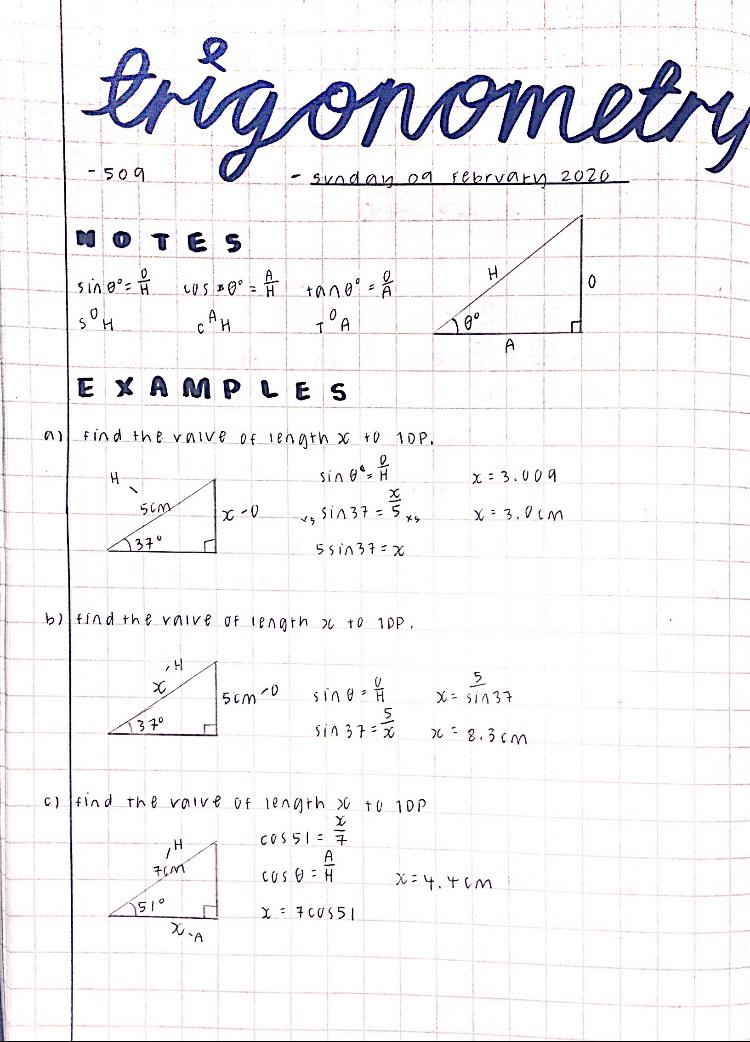 trigonometry
- 509 - sunday 09 february 2020
NOTES
sinθ° = O/H cosθ° = A/H tanθ° = O/A
SOH CAH TOA
H O θ° A
EXAMPLES
a) find the value of length x to 1DP.
H 5cm x-O 37°
sinθ° = O/H
×5 sin37 = x/5 ×5
5sin37 = x
x = 3.009
x = 3.0cm
b) find the value of length x to 1DP.
H x 5cm-O 37°
sinθ = O/H
sin37 = 5/x
x = 5/sin37
x = 8.3cm
c) find the value of length x to 1DP
H 7cm 51° x A
cos51 = x/7
cosθ = A/H
x = 7cos51
x = 4.4cm